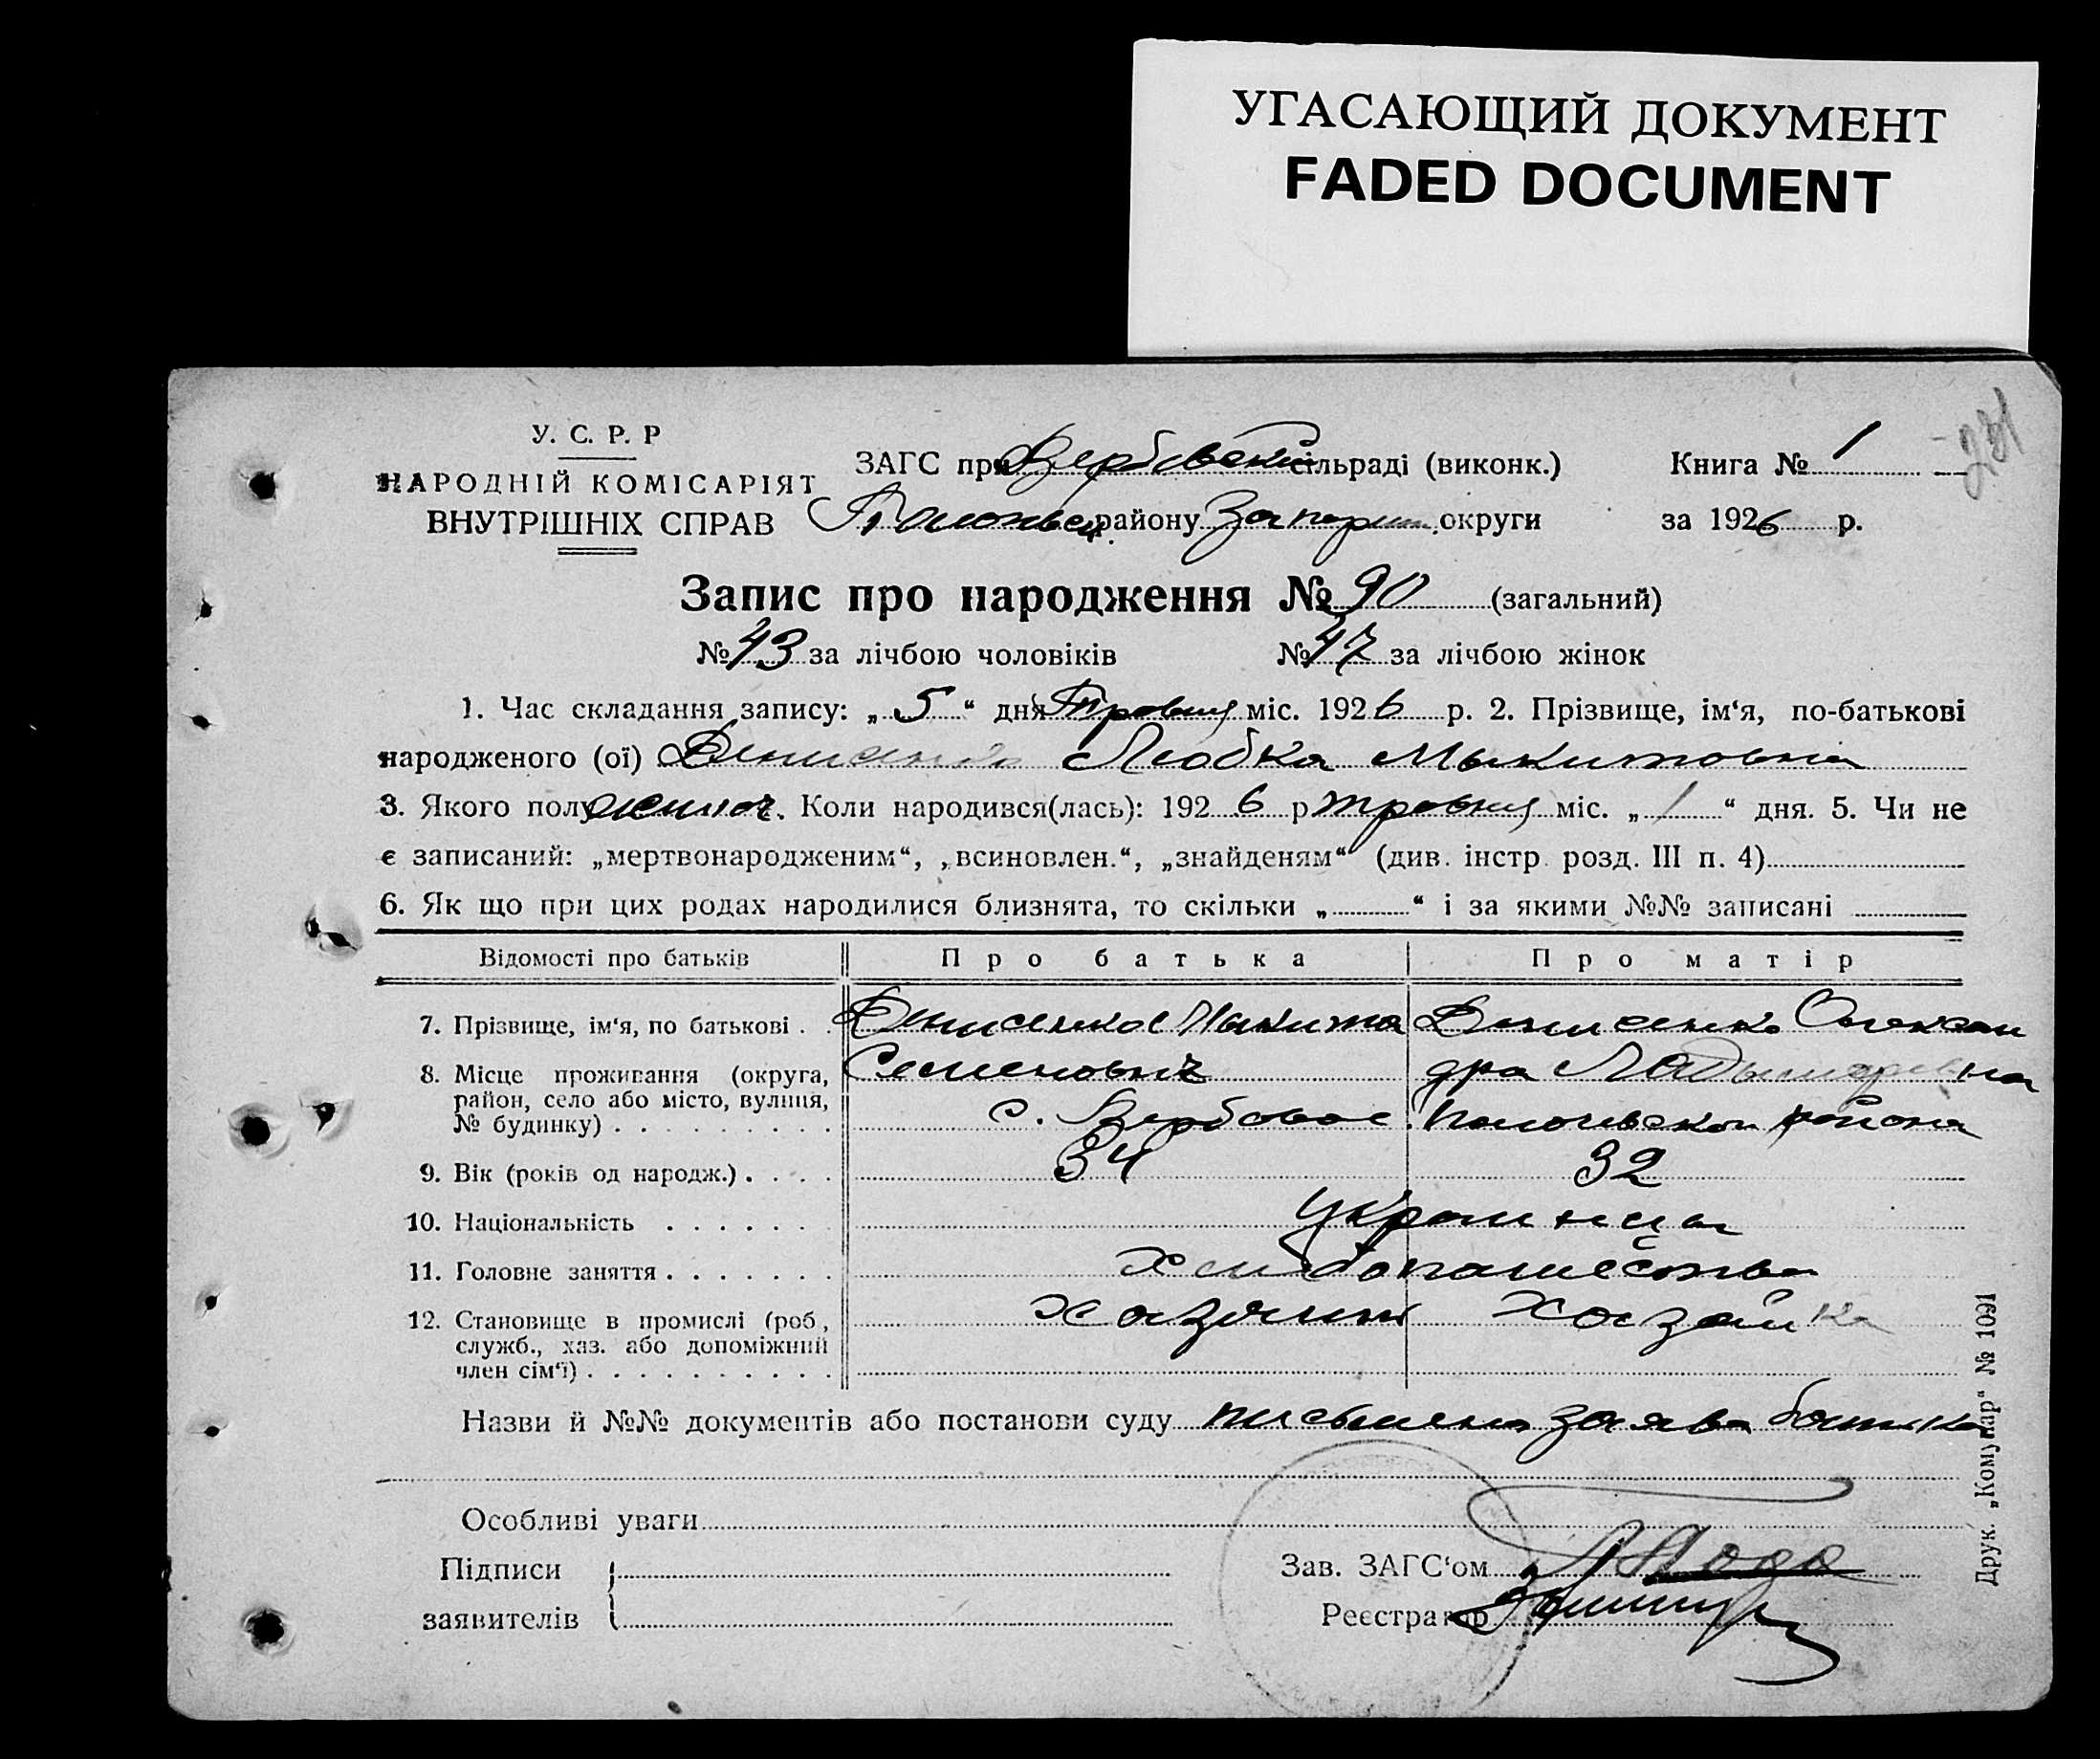 УГАСАЮЩИЙ ДОКУМЕНТ
FADED DOCUMENT
231
У. С. Р. Р
НАРОДНІЙ КОМІСАРІЯТ
ВНУТРІШНІХ СПРАВ
ЗАГС при Вербовській сільраді (виконк.) Книга № 1
району Запоріш. округи за 1926 р.
Запис про народження № 90 (загальний)
№ 43 за лічбою чоловіків № 47 за лічбою жінок
1. Час складання запису: „ 5 “ дня Травня міс. 1926 р. 2. Прізвище, ім‘я, по-батькові
народженого (ої) Денисенко Любка Микитовна
3. Якого полу жіноч. Коли народився(лась): 192 6 р травня міс. „ 1 “ дня. 5. Чи не
є записаний: „мертвонародженим“, „всиновлен.“, „знайденям“ (див. інстр. розд. III п. 4)
6. Як що при цих родах народилися близнята, то скільки „ “ і за якими №№ записані
Відомості про батьків Про батька Про матір
7. Прізвище, ім‘я, по батькові . . Денисенко Микита Денисенко Олексан
Семенович дра
8. Місце проживання (округа, район, село або місто, вулиця, № будинку) . . . . . . . . . с. Вербовое района
9. Вік (років од народж.) . . . . 34 32
10. Національність . . . . . . . Украинцы
11. Головне заняття . . . . . . . хлибопашество
12. Становище в промислі (роб., служб., хаз. або допоміжний член сім‘ї) . . . . . . . . . . хазяин хозяйка
Назви й №№ документів або постанови суду письмена заява батька
Особливі уваги
Підписи
заявителів
Зав. ЗАГС‘ом
Реєстратор
Друк. „Комунар“ № 1091